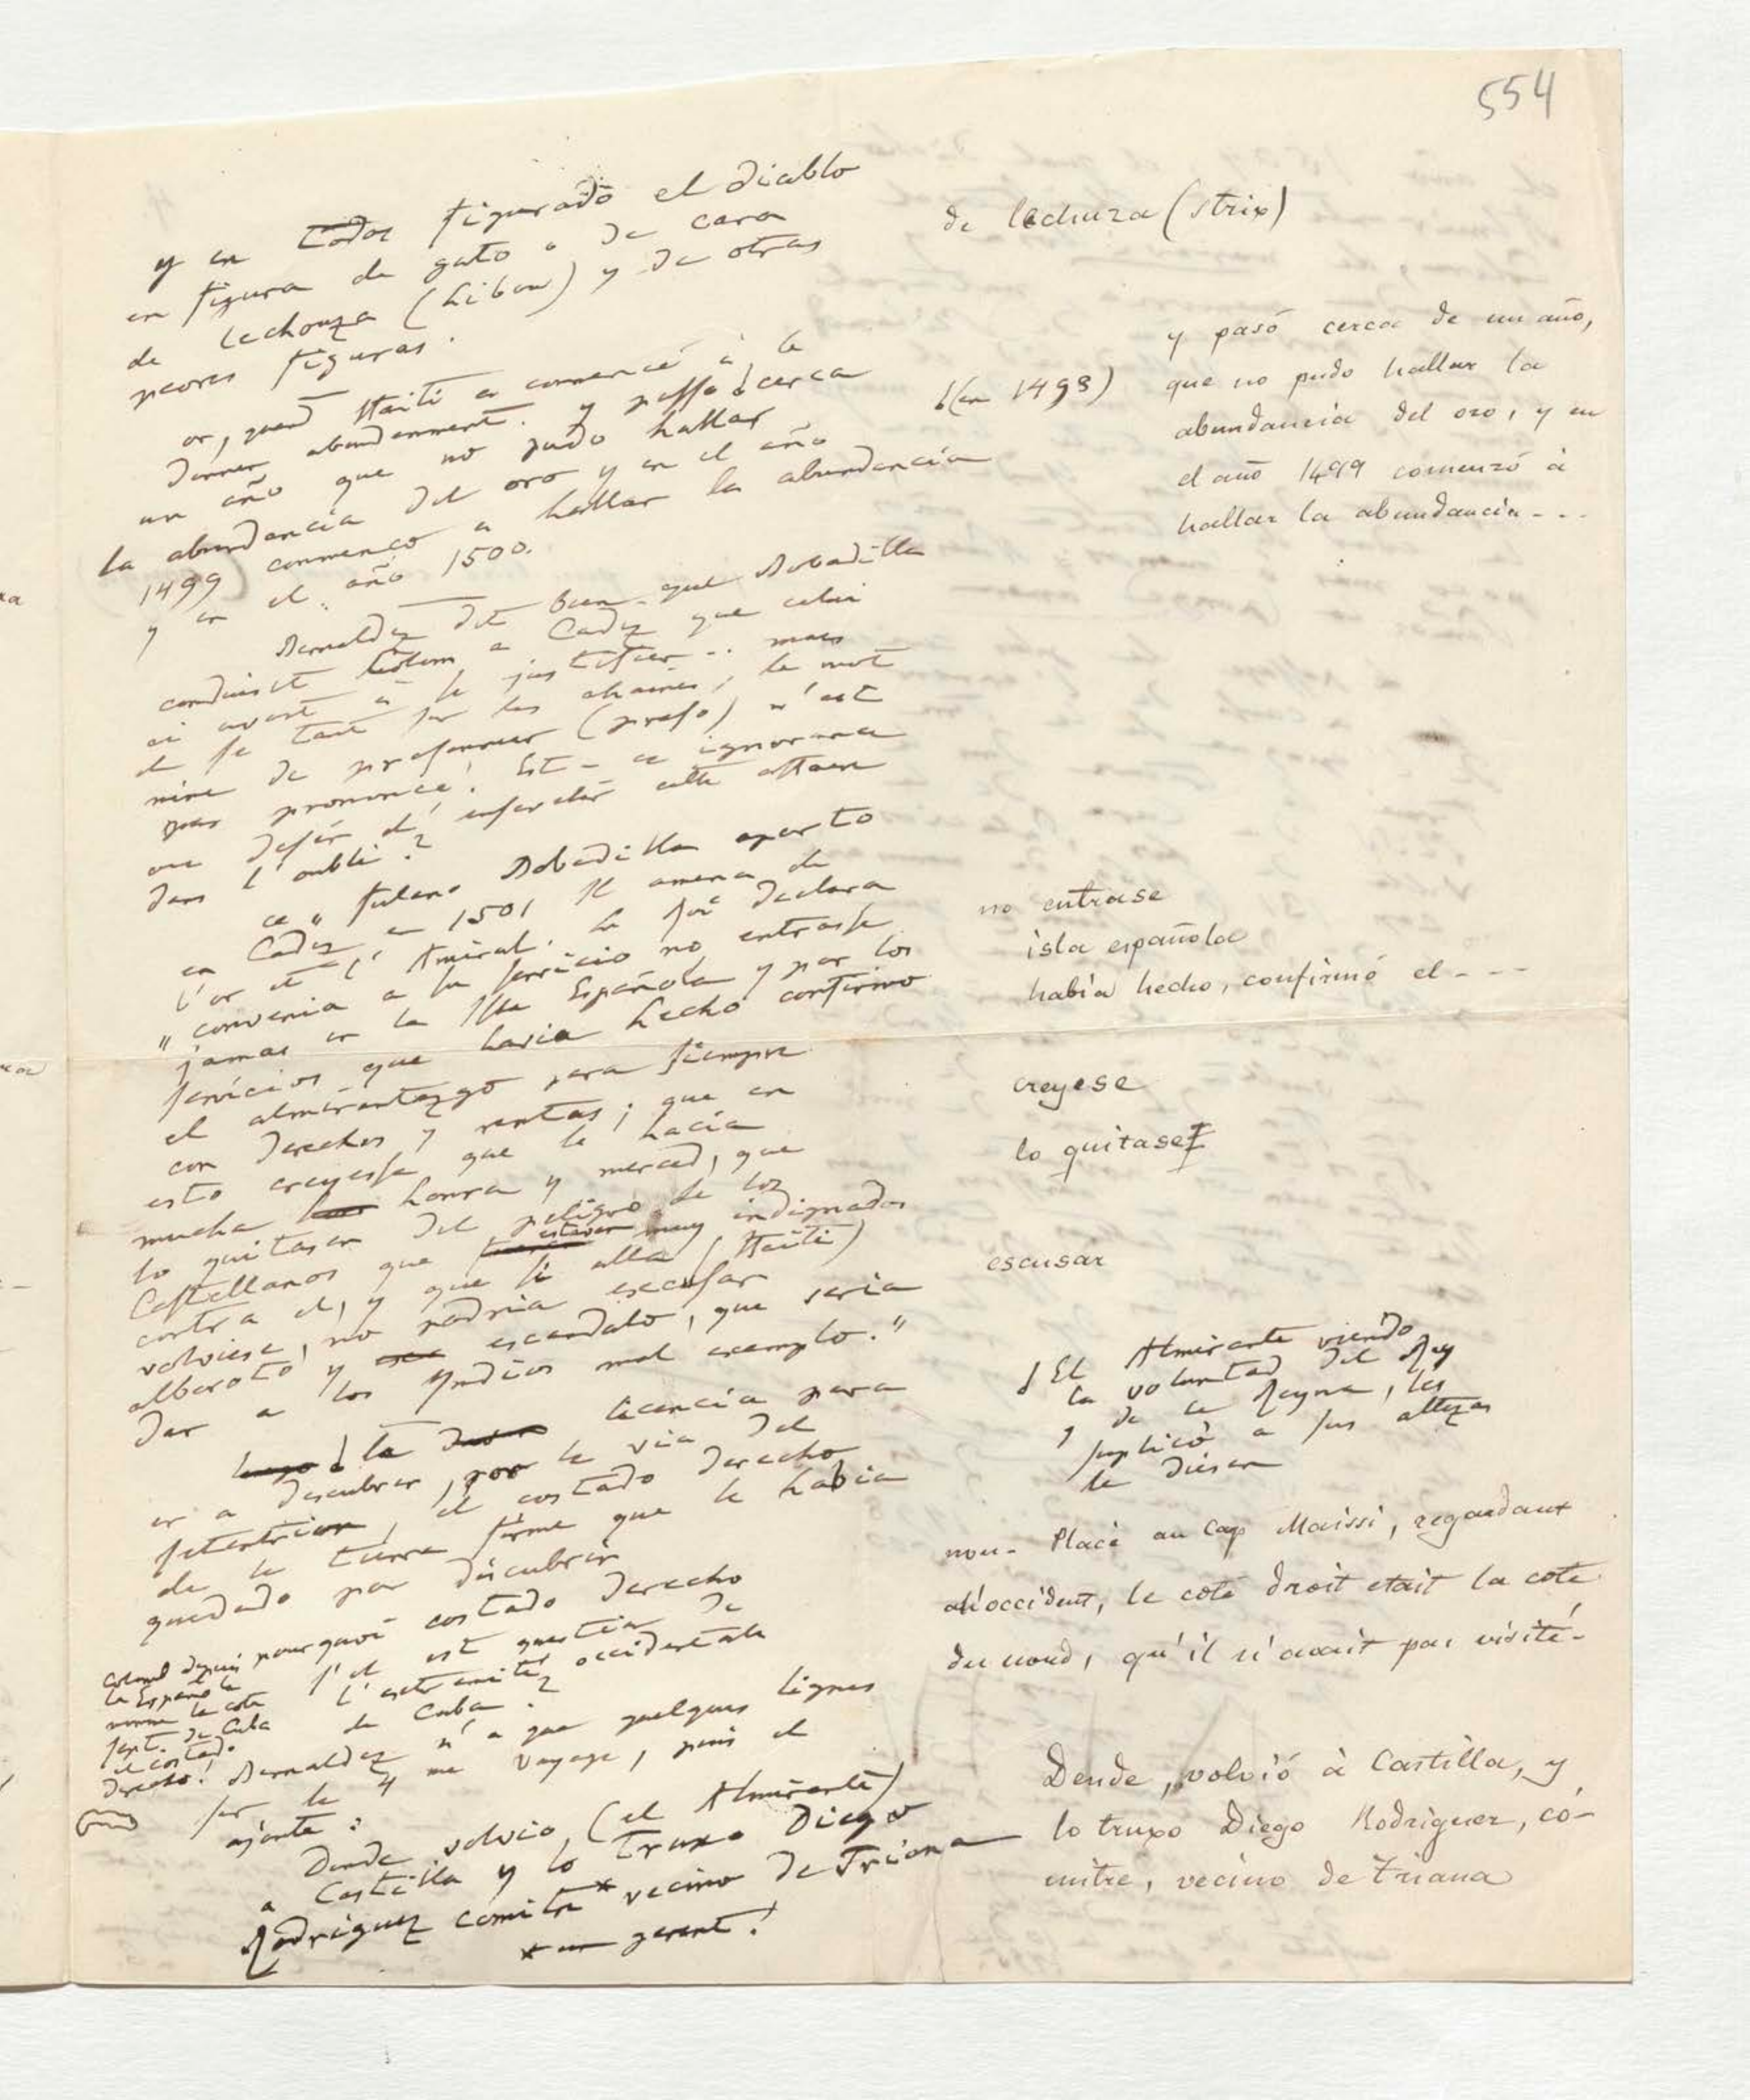 554
y en todos figurado el diablo
en figura de gato o de cara
de lechouza (hibou) y de otras
peores figuras.
or, quand Haiti a commencé à le
donner abondamment. y passo cerca
un año que no pudo hallar
la abundancia del oro y en el año
1499 commenco a hallar la abundancia
y en el año 1500.
Bernaldez dit bien que Bobadilla
conduisit Colom a Cadiz que celui
ci avait à se justifier.. mais
il se tait sur les chaines, le mot
même de prisonnier (preso) n'est
pas prononcé. Est-ce ignorance
ou désir d'ensevelir cette affaire
dans l'oubli?
ce "fulano Bobadilla aporto
en Cadiz en 1501 Il amena de
l'or et l'Amiral. Le Roi declara
"convenia a su servicio no entrasse
jamas en la Isla Española y por los
servicios que havia hecho confirmo
el almirantazgo para siempre
con derechos y rentas; que en
esto creyesse que le hacia
mucha honra y merced, que
lo quitasen del peligro de los
Castellanos que estavan muy indignados
contra el, y que si alla (Haiti)
volviese, no podria escusar
alboroto y escandalo, que seria
dar a los Indios mal exemplo."
la licencia para
ir a descubrir, por la via del
setentrion, el costado derecho
de la tierra firme que le habia
quedado por discubrir
pourquoi costado derecho
s'il est question de
l'extremité occidentale
de Cuba?
Colomb depuis
la Española
nomme la cote
sept. de Cuba
el costado
derecho!
Bernaldez n'a que quelques lignes
sur le 4me voyage, puis il
ajoute:
Dende volvio (el Almirante)
a Castilla y lo truxo Diego
Rodriguez comitre* vecino de Triana
* un gerent!
de lechuza (strix)
(en 1498)
y pasó cerca de un año,
que no pudo hallar la
abundancia del oro, y en
el año 1499 comenzó à
hallar la abundancia - - -
no entrase
isla española
había hecho, confirmó el - - -
creyese
lo quitase
escusar
El Almirante viendo
la voluntad del Rey
y de la Reyna, les
suplicó a sus altezas
le diesen
non. Placé au Cap Maissi, regardant
à l'occident, le coté droit etait la cote
du nord, qu'il n'avait pas visité.
Dende, volvió à Castilla, y
lo truxo Diego Rodriguez, có-
mitre, vecino de Triana